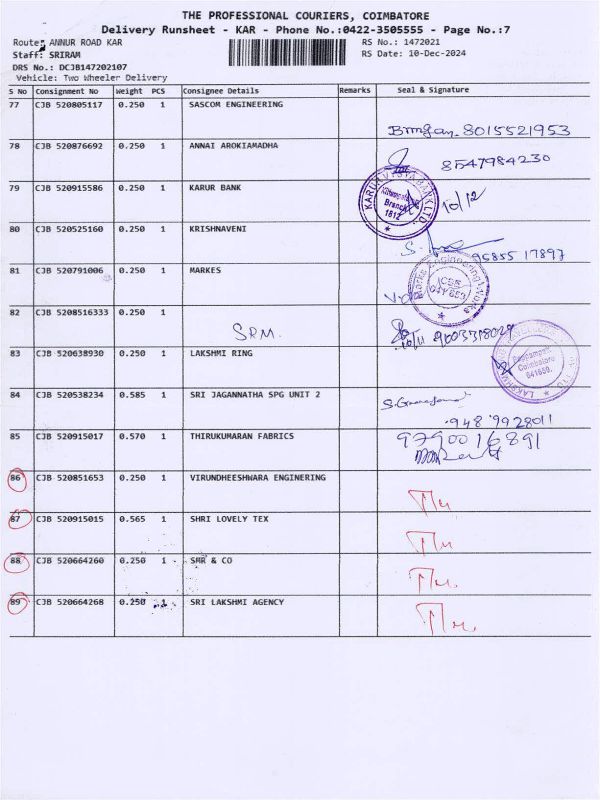 THE PROFESSIONAL COURIERS, COIMBATORE
Delivery Runsheet - KAR - Phone No.:0422-3505555 - Page No.:7
Route: ANNUR ROAD KAR RS No.: 1472021
Staff: SRIRAM RS Date: 10-Dec-2024
DRS No.: DCJB147202107
Vehicle: Two Wheeler Delivery
S No Consignment No Weight PCS Consignee Details Remarks Seal & Signature
77 CJB 520805117 0.250 1 SASCOM ENGINEERING
8015521953
78 CJB 520876692 0.250 1 ANNAI AROKIAMADHA
8547984230
79 CJB 520915586 0.250 1 KARUR BANK
KARUR VYSYA BANK LTD
Branch
1612
10/12
80 CJB 520525160 0.250 1 KRISHNAVENI
95855 17897
81 CJB 520791006 0.250 1 MARKES
Engineering Works
82 CJB 5208516333 0.250 1
SRM.
83 CJB 520638930 0.250 1 LAKSHMI RING
Coimbatore
641659.
84 CJB 520538234 0.585 1 SRI JAGANNATHA SPG UNIT 2
948 9928011
85 CJB 520915017 0.570 1 THIRUKUMARAN FABRICS
9790016891
86 CJB 520851653 0.250 1 VIRUNDHEESHWARA ENGINERING
87 CJB 520915015 0.565 1 SHRI LOVELY TEX
88 CJB 520664260 0.250 1 SMR & CO
89 CJB 520664268 0.250 1 SRI LAKSHMI AGENCY